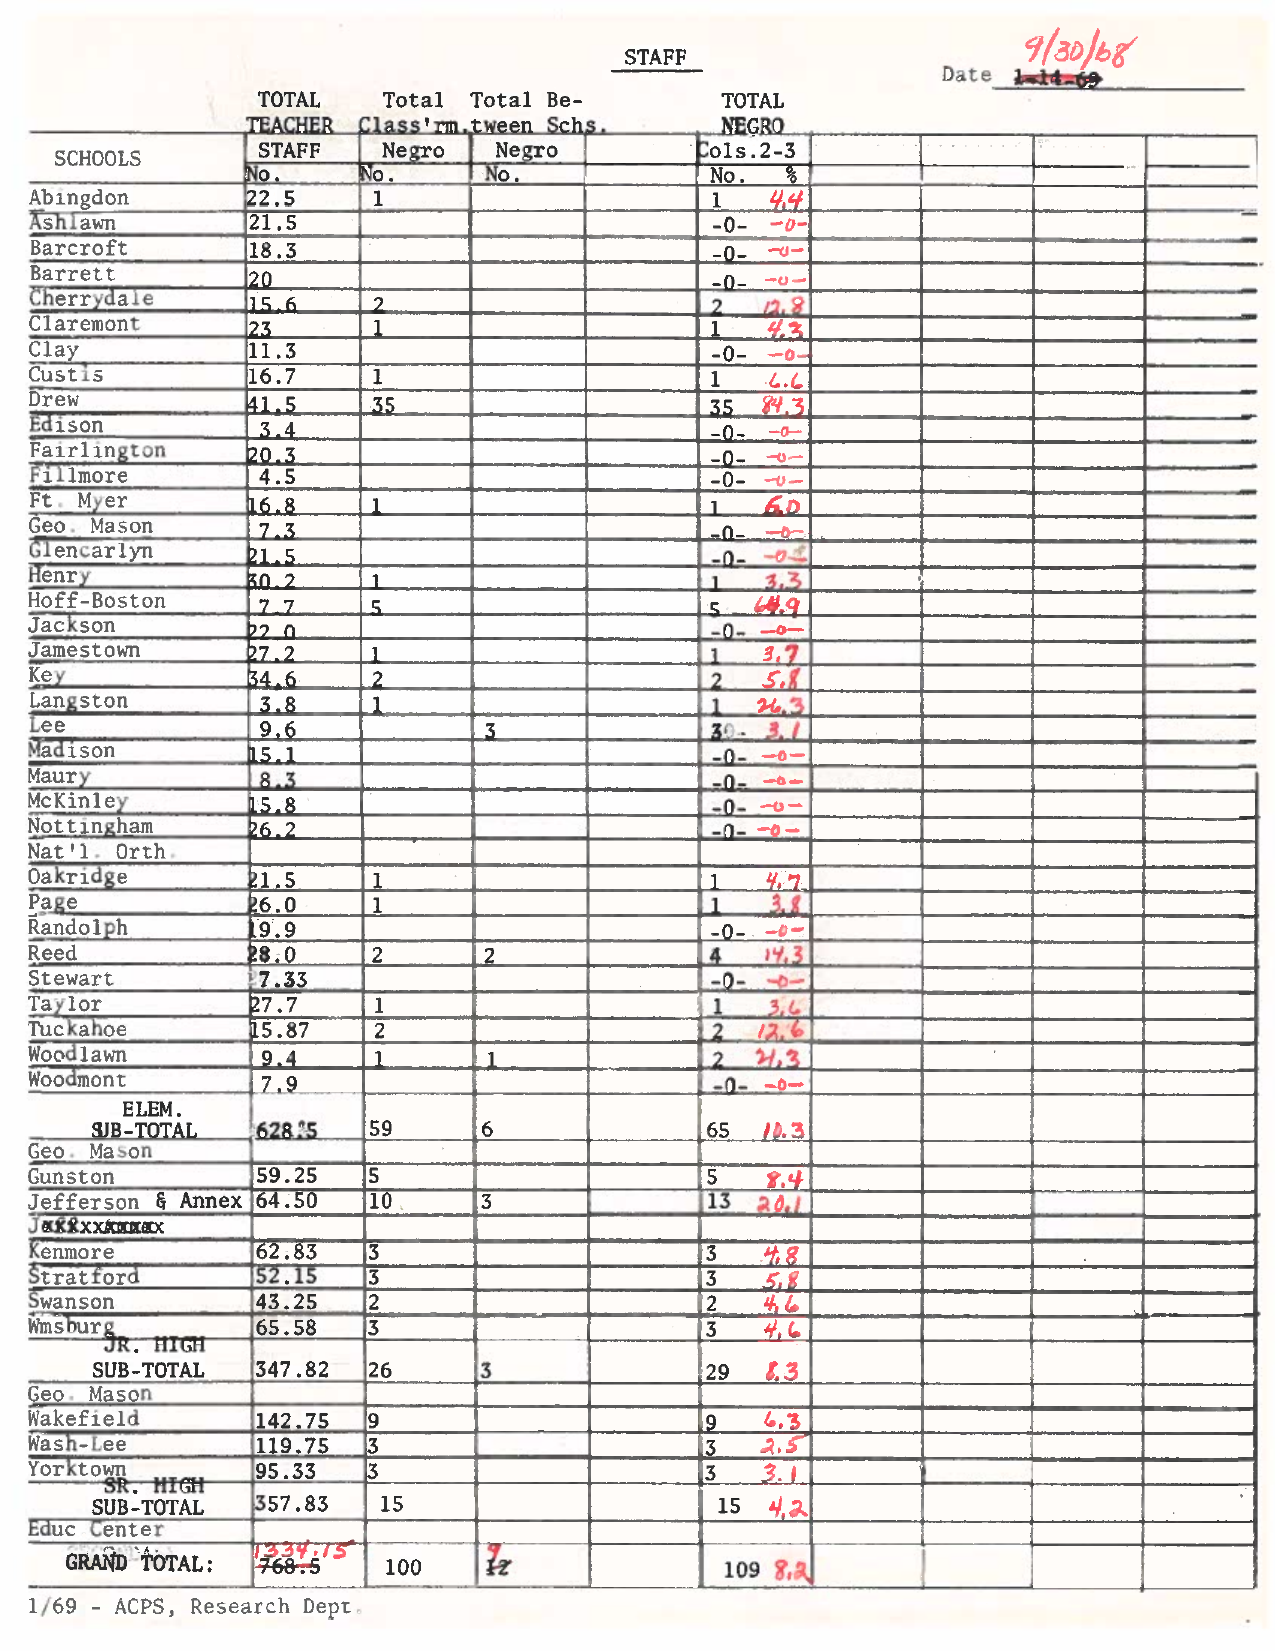 STAFF
9/30/68
Date 1-14-69
TOTAL Total Total Be- TOTAL
TEACHER Class'rm. tween Schs. NEGRO
SCHOOLS STAFF Negro Negro Cols.2-3
No. No. No. No. %
Abingdon 22.5 1 1 4.4
Ashlawn 21.5 -0- -0-
Barcroft 18.3 -0- -0-
Barrett 20 -0- -0-
Cherrydale 15.6 2 2 12.8
Claremont 23 1 1 4.3
Clay 11.3 -0- -0-
Custis 16.7 1 1 6.6
Drew 41.5 35 35 84.3
Edison 3.4 -0- -0-
Fairlington 20.3 -0- -0-
Fillmore 4.5 -0- -0-
Ft. Myer 16.8 1 1 6.0
Geo. Mason 7.3 -0- -0-
Glencarlyn 21.5 -0- -0-
Henry 30.2 1 1 3.3
Hoff-Boston 7.7 5 5 64.9
Jackson 22.0 -0- -0-
Jamestown 27.2 1 1 3.7
Key 34.6 2 2 5.8
Langston 3.8 1 1 26.3
Lee 9.6 3 3 3.1
Madison 15.1 -0- -0-
Maury 8.3 -0- -0-
McKinley 15.8 -0- -0-
Nottingham 26.2 -0- -0-
Nat'l. Orth.
Oakridge 21.5 1 1 4.7
Page 26.0 1 1 3.8
Randolph 19.9 -0- -0-
Reed 28.0 2 2 4 14.3
Stewart 7.33 -0- -0-
Taylor 27.7 1 1 3.6
Tuckahoe 15.87 2 2 12.6
Woodlawn 9.4 1 1 2 21.3
Woodmont 7.9 -0- -0-
ELEM.
SUB-TOTAL 628.5 59 6 65 10.3
Geo. Mason
Gunston 59.25 5 5 8.4
Jefferson & Annex 64.50 10 3 13 20.1
Kenmore 62.83 3 3 4.8
Stratford 52.15 3 3 5.8
Swanson 43.25 2 2 4.6
Wmsburg 65.58 3 3 4.6
JR. HIGH
SUB-TOTAL 347.82 26 3 29 8.3
Geo. Mason
Wakefield 142.75 9 9 6.3
Wash-Lee 119.75 3 3 2.5
Yorktown 95.33 3 3 3.1
SR. HIGH
SUB-TOTAL 357.83 15 15 4.2
Educ Center
1334.15 9
GRAND TOTAL: 768.5 100 12 109 8.2
1/69 - ACPS, Research Dept.